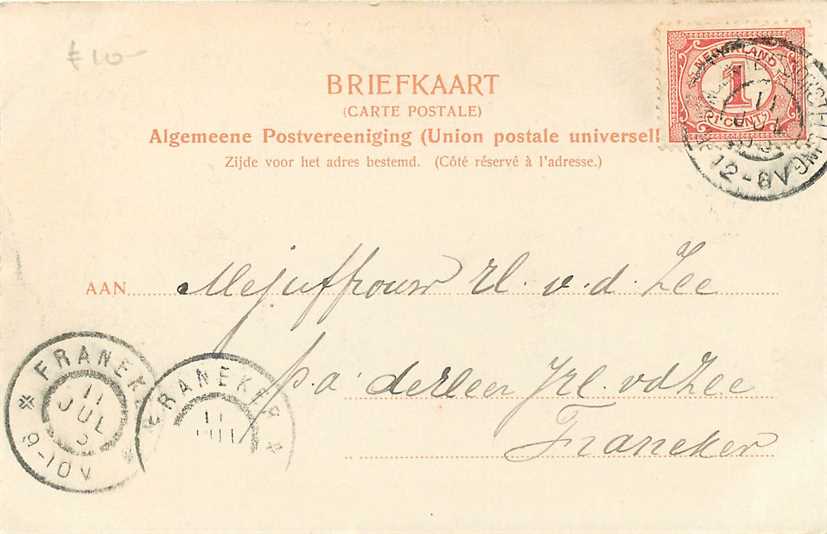 £ 10-
BRIEFKAART
(CARTE POSTALE)
Algemeene Postvereeniging (Union postale universel
Zijde voor het adres bestemd. (Côté réservé à l'adresse.)
NEDERLAND
1
CENT
11
12-8V
AAN Mejuffrouw H. v. d. Zee
p. a. derleer H. vd Zee
Franeker
FRANEKE
11
JUL
8-10V
FRANEKER
11
JUL